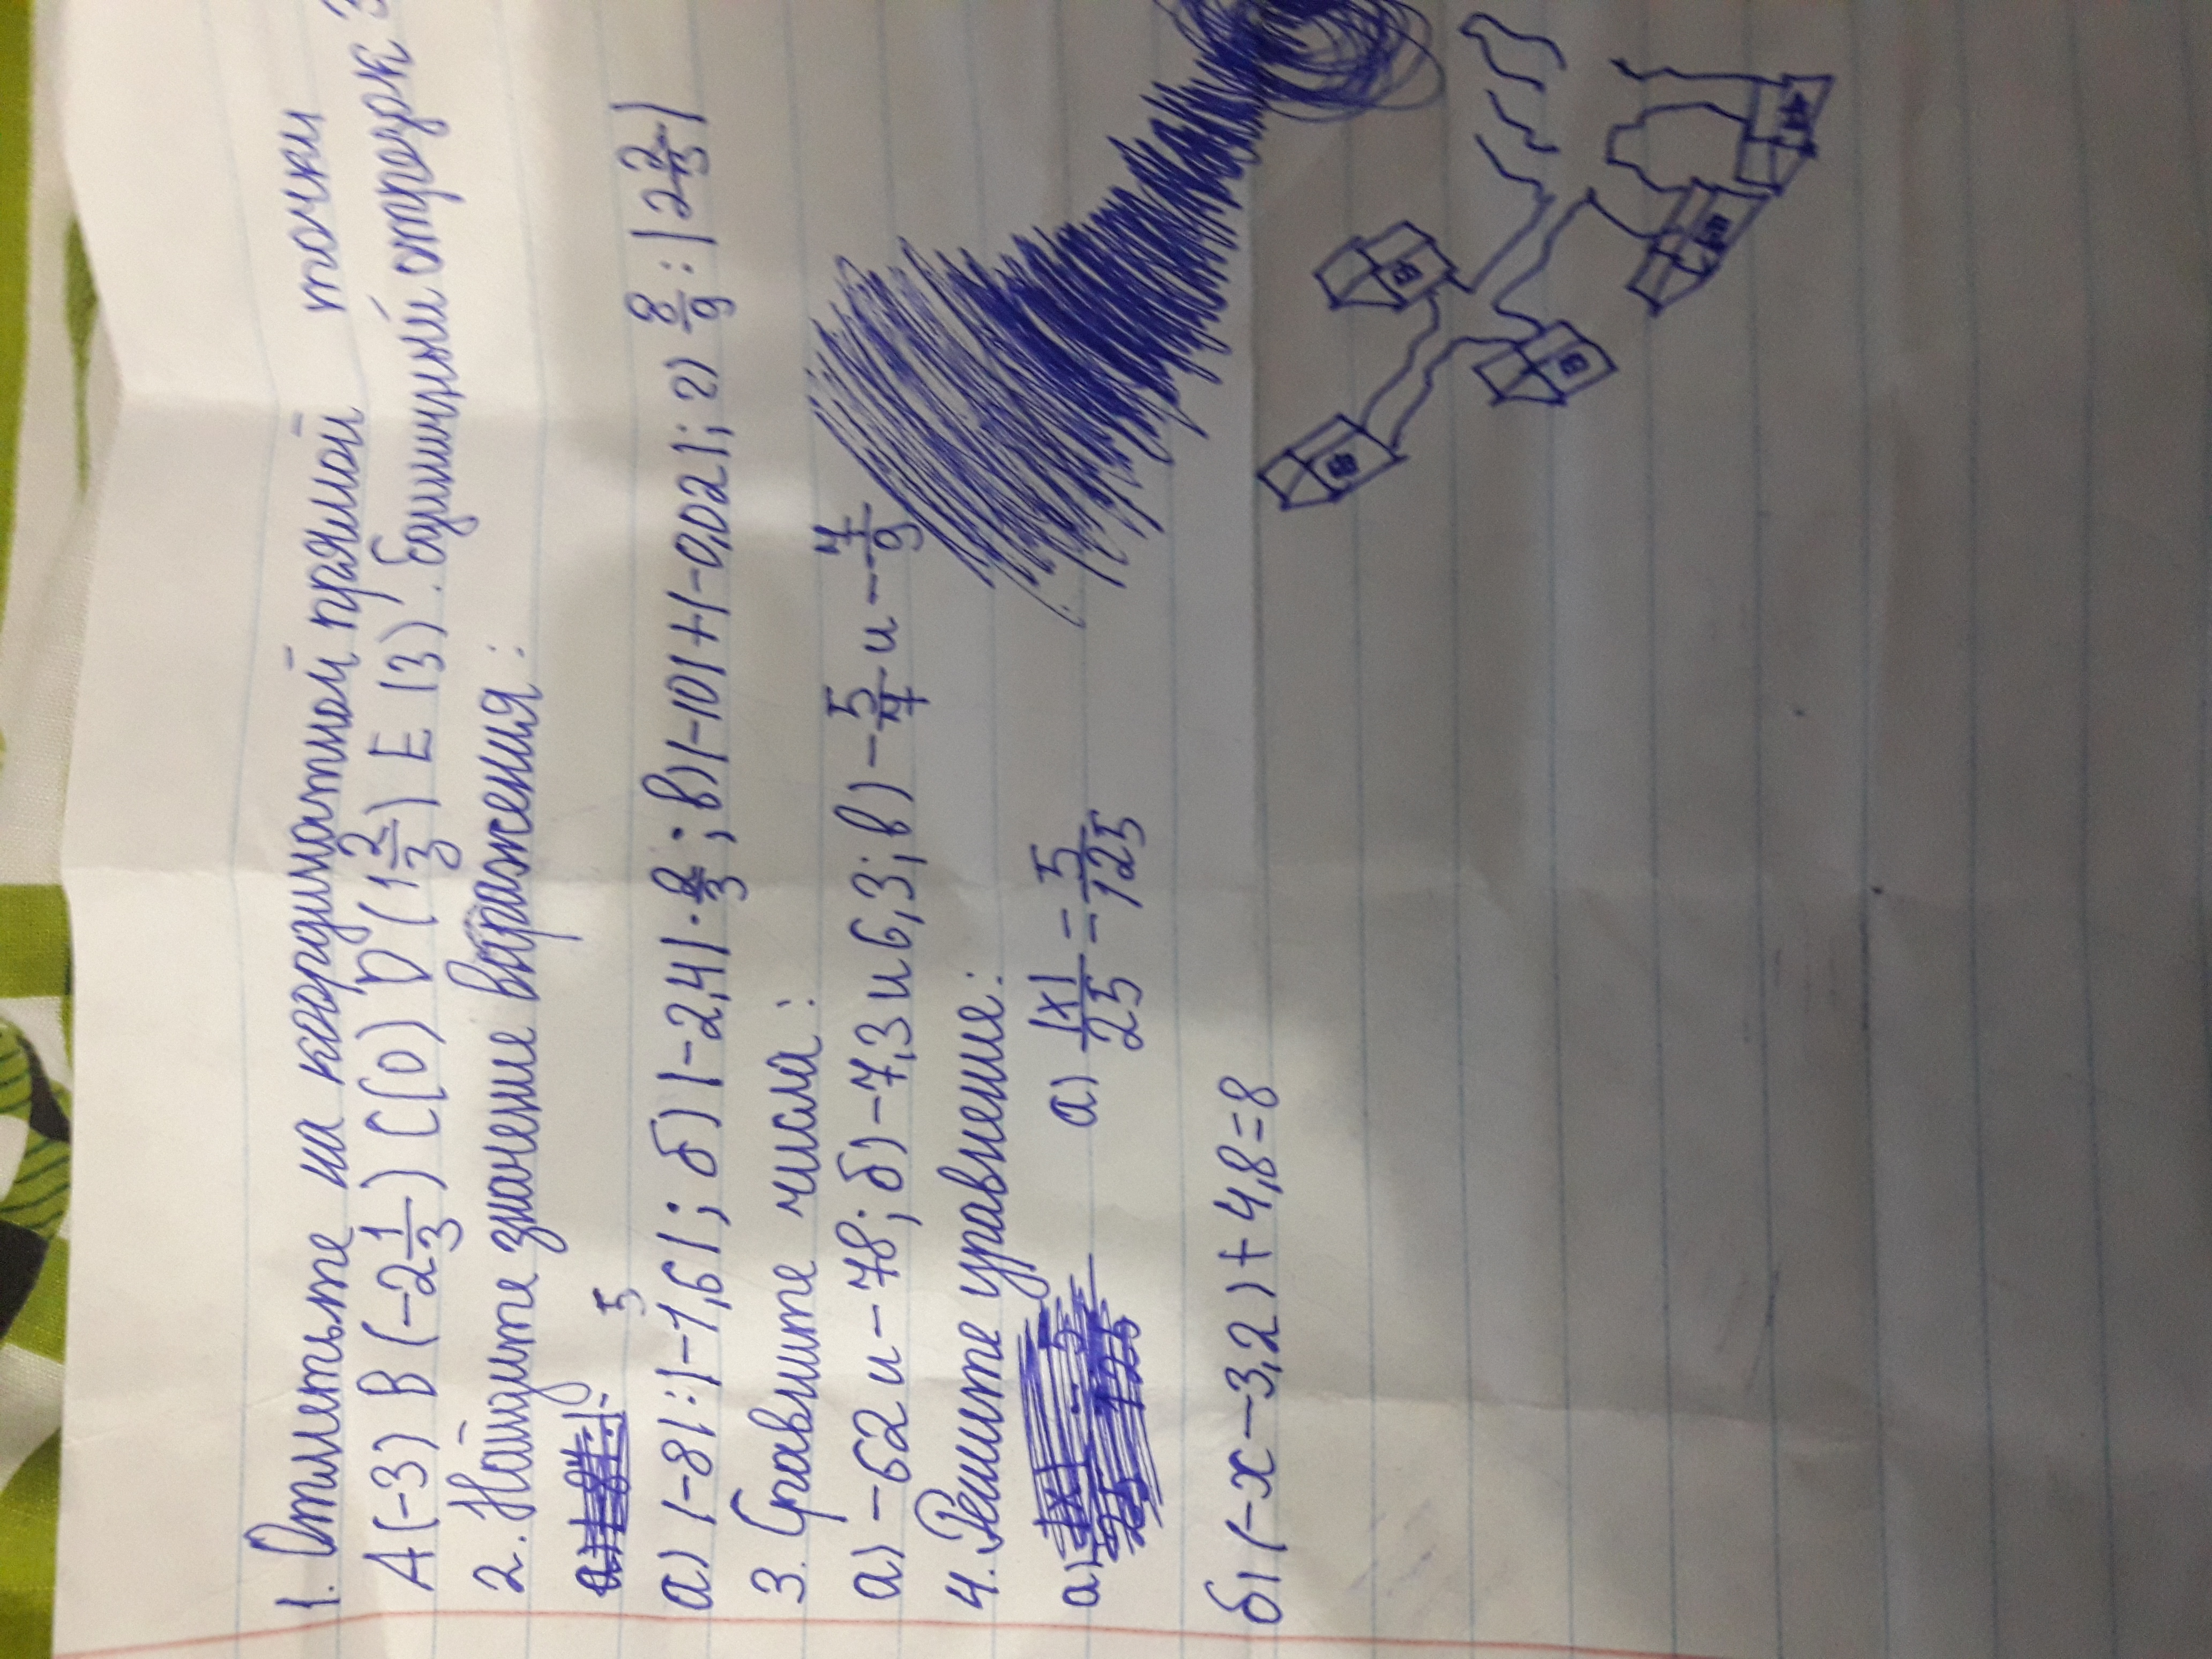 1. Отметьте на координатной прямой точки
A(-3) B(-2 1/3) C(0) D(1 2/3) E(3). Единичный отрезок 3
2. Найдите значение выражения:
5
а) |-8|:|-1,6|; б) |-2,4|· 2/3; в) |-10|+|-0,02|; г) 8/9 : |2 2/3|
3. Сравните числа:
а) -62 и -78; б) -7,3 и 6,3; в) -5/7 и -7/9
4. Решите уравнение:
а) |x|/25 = 5/125
б) (-x-3,2)+4,8=8